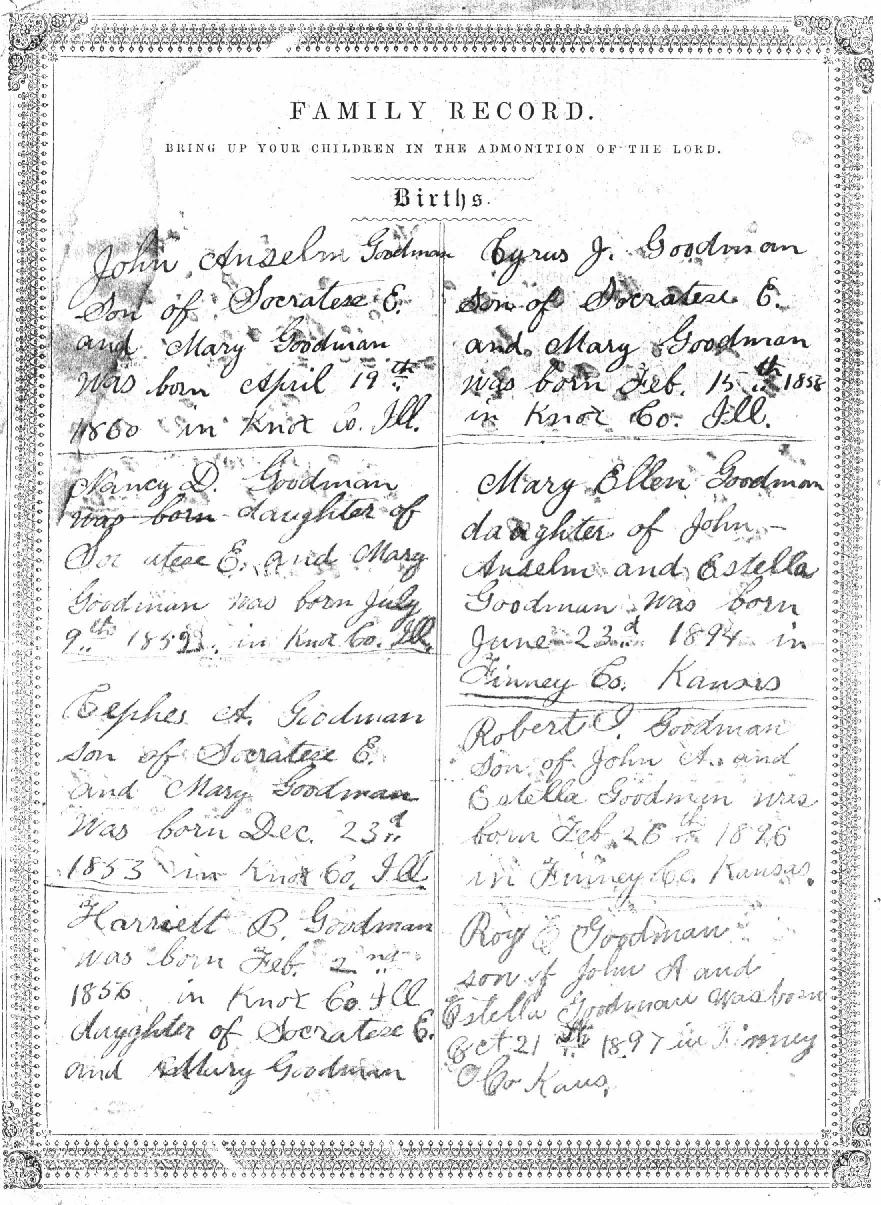 FAMILY RECORD.
BRING UP YOUR CHILDREN IN THE ADMONITION OF THE LORD.
Births.
John Anselm Goodman
Son of Socratese E.
and Mary Goodman
was born April 19th
1860 in Knox Co. Ill.
Nancy D. Goodman
was born daughter of
Socratese E. and Mary
Goodman was born July
9th 1852 in Knox Co. Ill.
Cephes A. Goodman
son of Socratese E.
and Mary Goodman
was born Dec. 23d
1853 in Knox Co. Ill.
Harriett B. Goodman
was born Feb. 2nd
1856 in Knox Co. Ill
daughter of Socratese E.
and Mary Goodman
Cyrus J. Goodman
Son of Socratese E.
and Mary Goodman
was born Feb. 15th 1858
in Knox Co. Ill.
Mary Ellen Goodman
daughter of John
Anselm and Estella
Goodman was born
June 23d 1894 in
Finney Co. Kansas
Robert I. Goodman
son of John A. and
Estella Goodman was
born Feb. 26th 1896
in Finney Co. Kansas.
Roy E Goodman
son of John A and
Estella Goodman was born
Oct 21st 1897 in Finney
Co Kans.